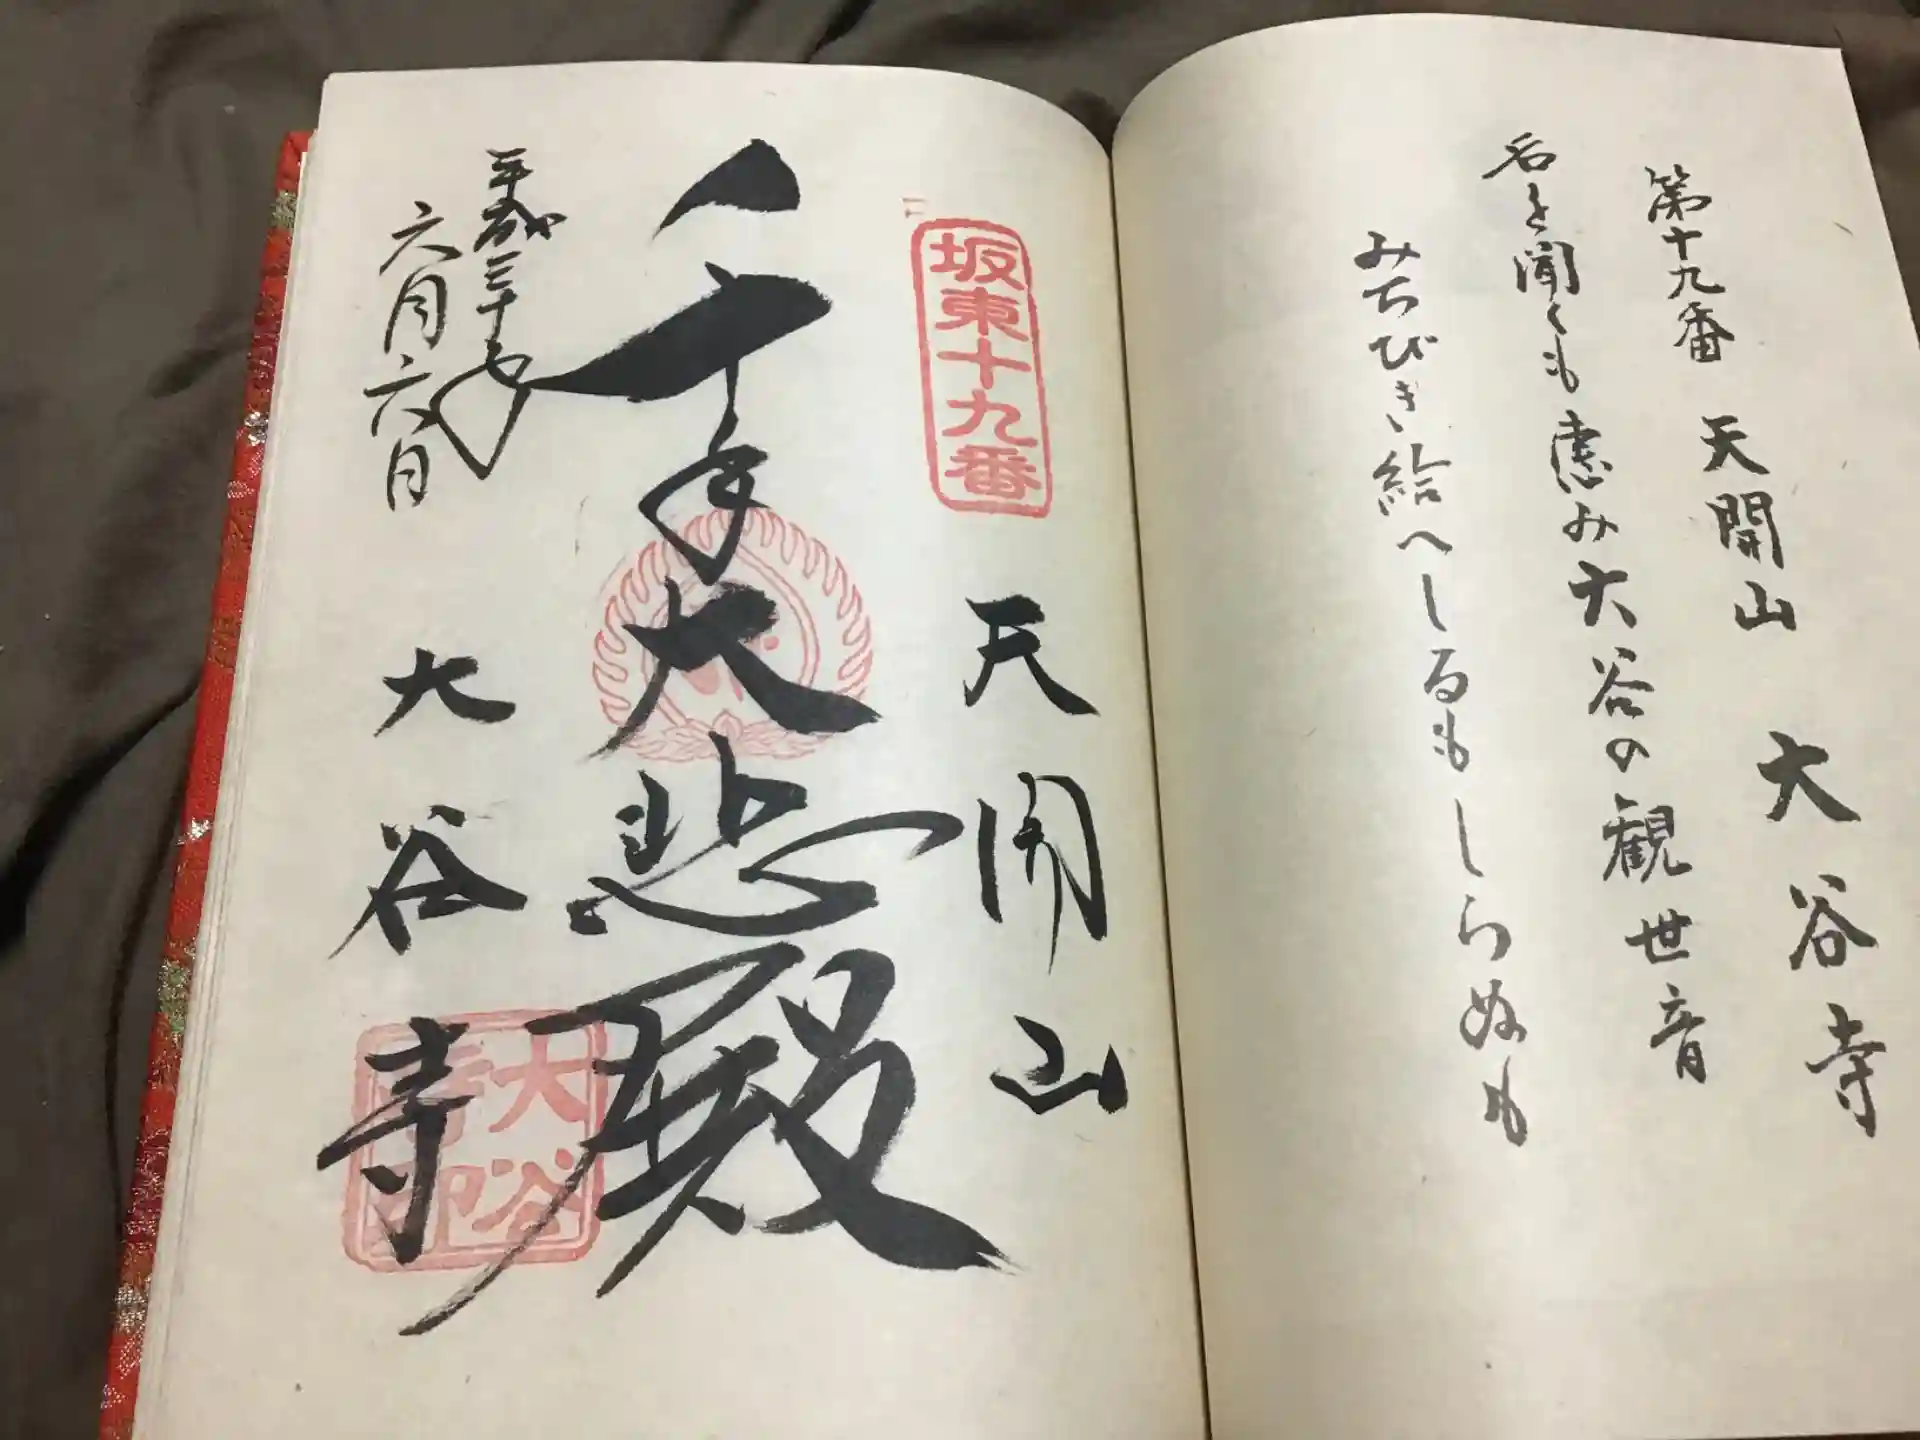 第十九番 天開山 大谷寺
名を聞くも恵み大谷の観世音
みちびき給へしるもしらぬも
坂東十九番
天開山
千手大悲殿
平成三十年
六月六日
大谷寺
大谷寺印